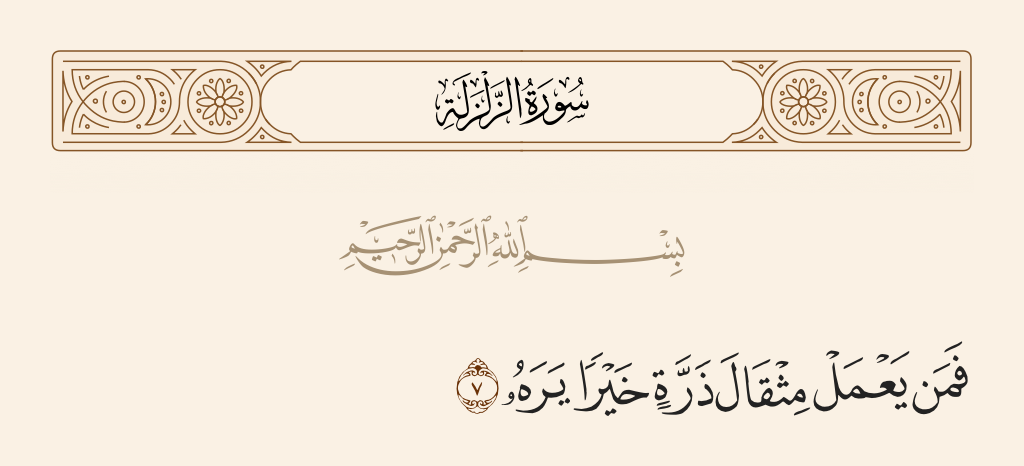 سُورَةُ الزَّلْزَلَةِ
بِسْمِ ٱللَّهِ ٱلرَّحْمَٰنِ ٱلرَّحِيمِ
فَمَن يَعْمَلْ مِثْقَالَ ذَرَّةٍ خَيْرًا يَرَهُۥ ٧